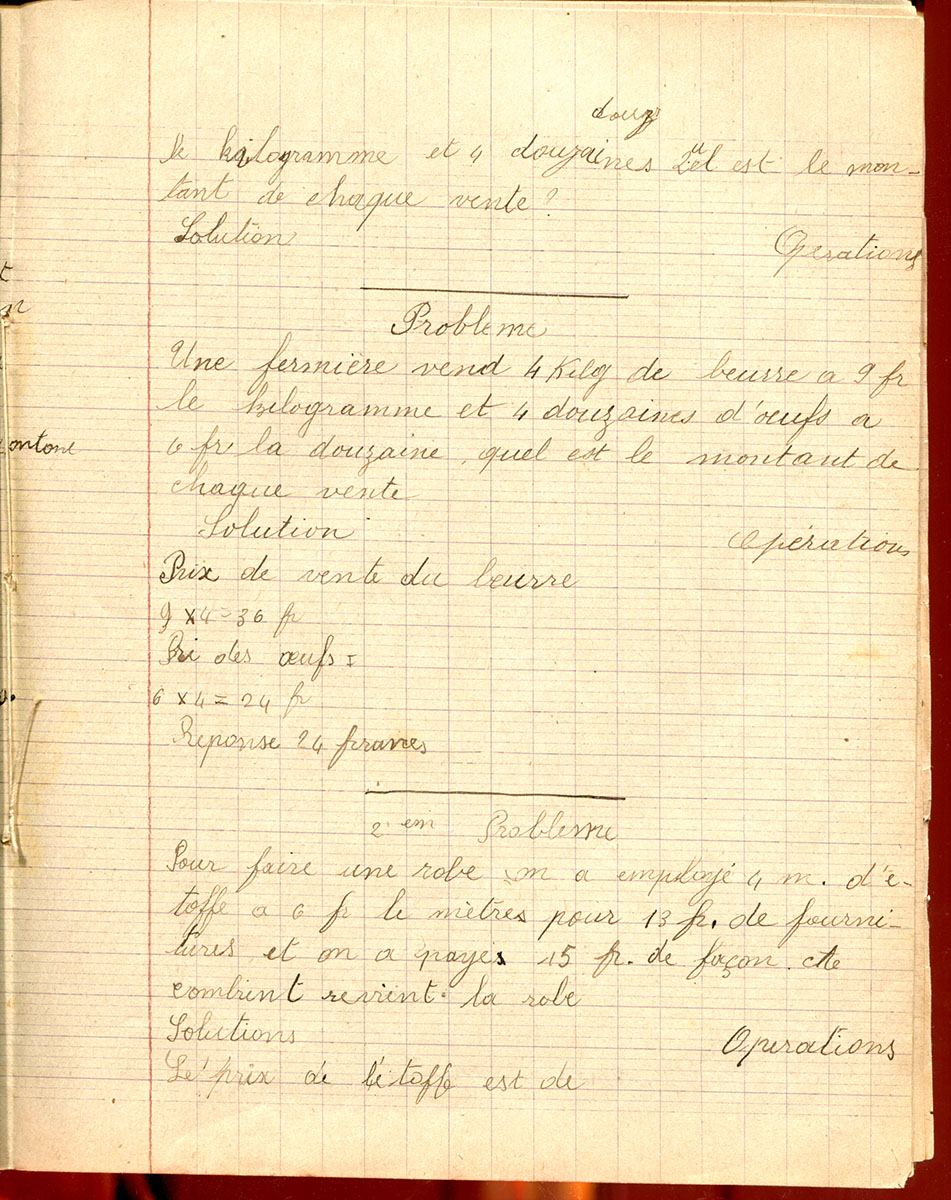 douz
le kilogramme et 4 douzaines Quel est le mon-
tant de chaque vente ?
Solution
Operations
Probleme
Une fermière vend 4 Kilg de beurre a 9 fr
le kilogramme et 4 douzaines d'œufs a
6 fr la douzaine, quel est le montant de
chaque vente
Solution
Opérations
Prix de vente du beurre
9 x 4 = 36 fr
Pri des œufs =
6 x 4 = 24 fr
Reponse 24 francs
2 em Probleme
Pour faire une robe on a employé 4 m. d'é-
toffe a 6 fr le mètres pour 13 fr. de fourni-
tures et on a payes 15 fr. de façon. A te
combint revient la robe
Solutions
Operations
Le prix de l'étoffe est de